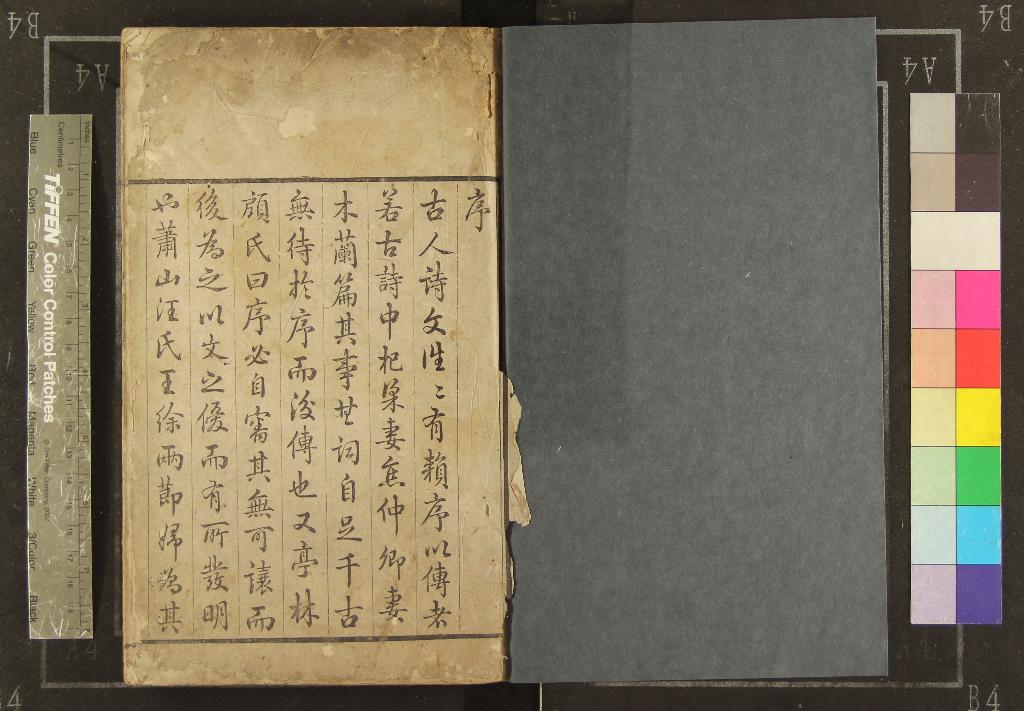 序
古人詩文徃〻有頼序以傳者
若古詩中杞梁妻焦仲卿妻
木蘭篇其事其詞自足千古
無待於序而後傳也又亭林
顧氏曰序必自審其無可讓而
後為之以文之優而有所發明
也蕭山汪氏王徐兩節婦為其
B4
A4
B4
A4
inches
Centimetres
TIFFEN Color Control Patches
© The Tiffen Company, 2007
Blue Cyan Green Yellow Red Magenta White 3/Color Black
A4
A4
B4